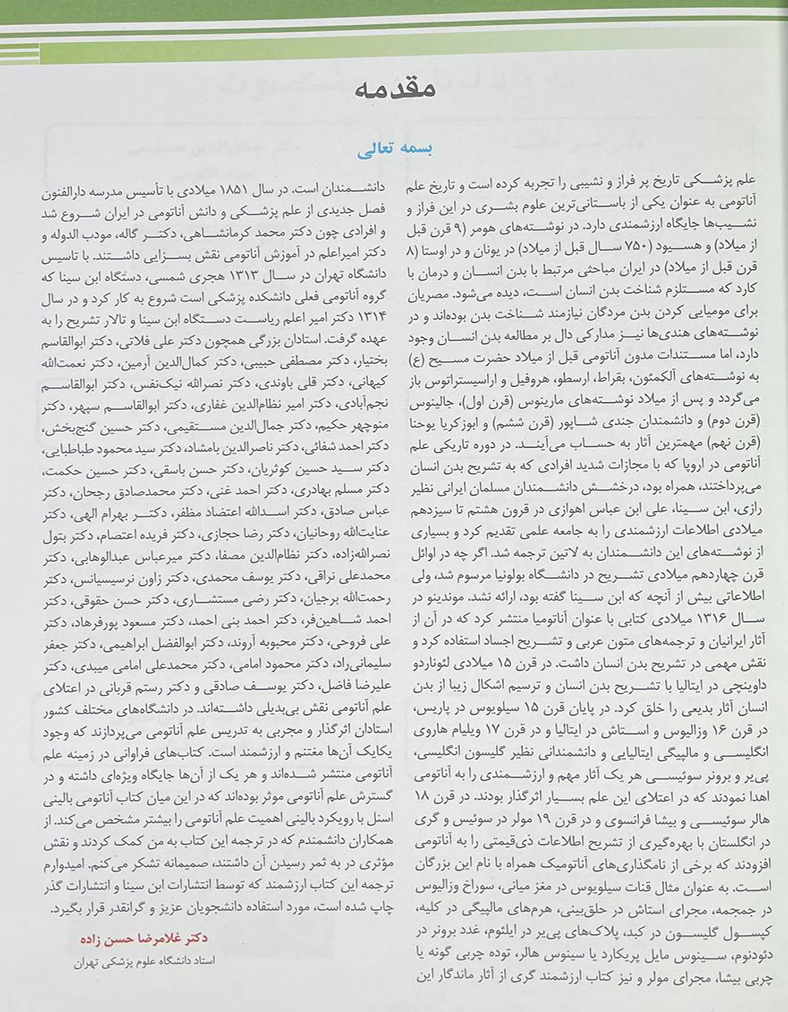 مقدمه
بسمه تعالی
علم پزشکی تاریخ پر فراز و نشیبی را تجربه کرده است و تاریخ علم
آناتومی به عنوان یکی از باستانی‌ترین علوم بشری در این فراز و
نشیب‌ها جایگاه ارزشمندی دارد. در نوشته‌های هومر (۹ قرن قبل
از میلاد) و هسیود (۷۵۰ سال قبل از میلاد) در یونان و در اوستا (۸
قرن قبل از میلاد) در ایران مباحثی مرتبط با بدن انسان و درمان با
کارد که مستلزم شناخت بدن انسان است، دیده می‌شود. مصریان
برای مومیایی کردن بدن مردگان نیازمند شناخت بدن بوده‌اند و در
نوشته‌های هندی‌ها نیز مدارکی دال بر مطالعه بدن انسان وجود
دارد، اما مستندات مدون آناتومی قبل از میلاد حضرت مسیح (ع)
به نوشته‌های آلکمئون، بقراط، ارسطو، هروفیل و اراسیستراتوس باز
می‌گردد و پس از میلاد نوشته‌های مارینوس (قرن اول)، جالینوس
(قرن دوم) و دانشمندان جندی شاپور (قرن ششم) و ابوزکریا یوحنا
(قرن نهم) مهمترین آثار به حساب می‌آیند. در دوره تاریکی علم
آناتومی در اروپا که با مجازات شدید افرادی که به تشریح بدن انسان
می‌پرداختند، همراه بود، درخشش دانشمندان مسلمان ایرانی نظیر
رازی، ابن سینا، علی ابن عباس اهوازی در قرون هشتم تا سیزدهم
میلادی اطلاعات ارزشمندی را به جامعه علمی تقدیم کرد و بسیاری
از نوشته‌های این دانشمندان به لاتین ترجمه شد. اگر چه در اوائل
قرن چهاردهم میلادی تشریح در دانشگاه بولونیا مرسوم شد، ولی
اطلاعاتی بیش از آنچه که ابن سینا گفته بود، ارائه نشد. موندینو در
سال ۱۳۱۶ میلادی کتابی با عنوان آناتومیا منتشر کرد که در آن از
آثار ایرانیان و ترجمه‌های متون عربی و تشریح اجساد استفاده کرد و
نقش مهمی در تشریح بدن انسان داشت. در قرن ۱۵ میلادی لئوناردو
داوینچی در ایتالیا با تشریح بدن انسان و ترسیم اشکال زیبا از بدن
انسان آثار بدیعی را خلق کرد. در پایان قرن ۱۵ سیلویوس در پاریس،
در قرن ۱۶ وزالیوس و استاش در ایتالیا و در قرن ۱۷ ویلیام هاروی
انگلیسی و مالپیگی ایتالیایی و دانشمندانی نظیر گلیسون انگلیسی،
پی‌یر و برونر سوئیسی هر یک آثار مهم و ارزشمندی را به آناتومی
اهدا نمودند که در اعتلای این علم بسیار اثرگذار بودند. در قرن ۱۸
هالر سوئیسی و بیشا فرانسوی و در قرن ۱۹ مولر در سوئیس و گری
در انگلستان با بهره‌گیری از تشریح اطلاعات ذی‌قیمتی را به آناتومی
افزودند که برخی از نامگذاری‌های آناتومیک همراه با نام این بزرگان
است. به عنوان مثال قنات سیلویوس در مغز میانی، سوراخ وزالیوس
در جمجمه، مجرای استاش در حلق‌بینی، هرم‌های مالپیگی در کلیه،
کپسول گلیسون در کبد، پلاک‌های پی‌یر در ایلئوم، غدد برونر در
دئودنوم، سینوس مایل پریکارد یا سینوس هالر، توده چربی گونه یا
چربی بیشا، مجرای مولر و نیز کتاب ارزشمند گری از آثار ماندگار این
دانشمندان است. در سال ۱۸۵۱ میلادی با تأسیس مدرسه دارالفنون
فصل جدیدی از علم پزشکی و دانش آناتومی در ایران شروع شد
و افرادی چون دکتر محمد کرمانشاهی، دکتر گاله، مودب الدوله و
دکتر امیراعلم در آموزش آناتومی نقش بسزایی داشتند. با تاسیس
دانشگاه تهران در سال ۱۳۱۳ هجری شمسی، دستگاه ابن سینا که
گروه آناتومی فعلی دانشکده پزشکی است شروع به کار کرد و در سال
۱۳۱۴ دکتر امیر اعلم ریاست دستگاه ابن سینا و تالار تشریح را به
عهده گرفت. استادان بزرگی همچون دکتر علی فلاتی، دکتر ابوالقاسم
بختیار، دکتر مصطفی حبیبی، دکتر کمال‌الدین آرمین، دکتر نعمت‌الله
کیهانی، دکتر قلی باوندی، دکتر نصرالله نیک‌نفس، دکتر ابوالقاسم
نجم‌آبادی، دکتر امیر نظام‌الدین غفاری، دکتر ابوالقاسم سپهر، دکتر
منوچهر حکیم، دکتر جمال‌الدین مستقیمی، دکتر حسین گنج‌بخش،
دکتر احمد شفائی، دکتر ناصرالدین بامشاد، دکتر سید محمود طباطبایی،
دکتر سید حسین کوثریان، دکتر حسن باسقی، دکتر حسین حکمت،
دکتر مسلم بهادری، دکتر احمد غنی، دکتر محمدصادق رجحان، دکتر
عباس صادق، دکتر اسدالله اعتضاد مظفر، دکتر بهرام الهی، دکتر
عنایت‌الله روحانیان، دکتر رضا حجازی، دکتر فریده اعتصام، دکتر بتول
نصرالله‌زاده، دکتر نظام‌الدین مصفا، دکتر میرعباس عبدالوهابی، دکتر
محمدعلی نراقی، دکتر یوسف محمدی، دکتر زاون نرسیسیانس، دکتر
رحمت‌الله برجیان، دکتر رضی مستشاری، دکتر حسن حقوقی، دکتر
احمد شاهین‌فر، دکتر احمد بنی احمد، دکتر مسعود پورفرهاد، دکتر
علی فروحی، دکتر محبوبه آروند، دکتر ابوالفضل ابراهیمی، دکتر جعفر
سلیمانی‌راد، دکتر محمود امامی، دکتر محمدعلی امامی میبدی، دکتر
علیرضا فاضل، دکتر یوسف صادقی و دکتر رستم قربانی در اعتلای
علم آناتومی نقش بی‌بدیلی داشته‌اند. در دانشگاه‌های مختلف کشور
استادان اثرگذار و مجربی به تدریس علم آناتومی می‌پردازند که وجود
یکایک آن‌ها مغتنم و ارزشمند است. کتاب‌های فراوانی در زمینه علم
آناتومی منتشر شده‌اند و هر یک از آن‌ها جایگاه ویژه‌ای داشته و در
گسترش علم آناتومی موثر بوده‌اند که در این میان کتاب آناتومی بالینی
اسنل با رویکرد بالینی اهمیت علم آناتومی را بیشتر مشخص می‌کند. از
همکاران دانشمندم که در ترجمه این کتاب به من کمک کردند و نقش
مؤثری در به ثمر رسیدن آن داشتند، صمیمانه تشکر می‌کنم. امیدوارم
ترجمه این کتاب ارزشمند که توسط انتشارات ابن سینا و انتشارات گذر
چاپ شده است، مورد استفاده دانشجویان عزیز و گرانقدر قرار بگیرد.
دکتر غلامرضا حسن زاده
استاد دانشگاه علوم پزشکی تهران